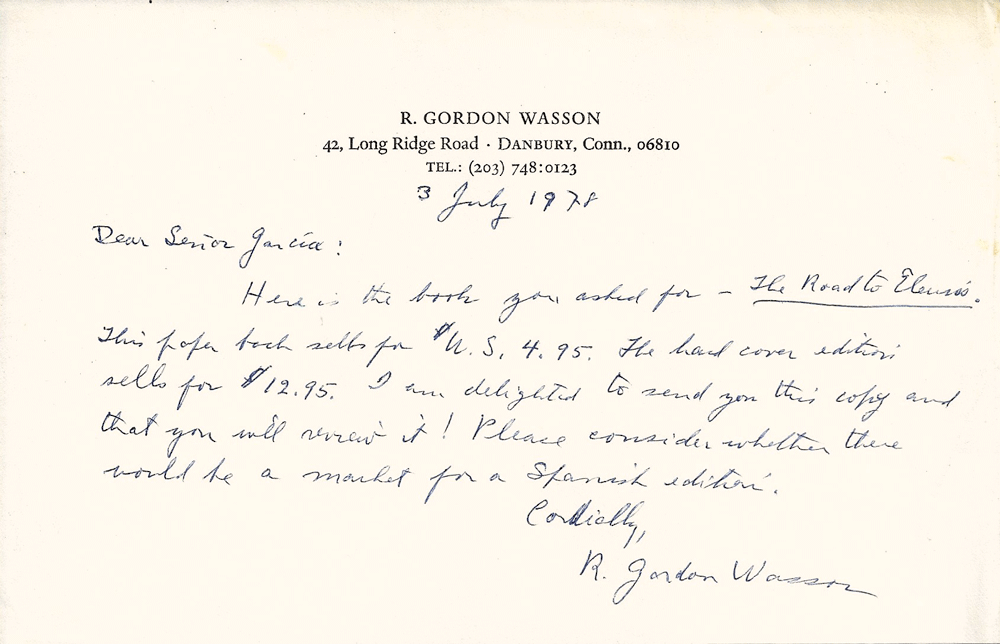 R. GORDON WASSON
42, Long Ridge Road · DANBURY, Conn., 06810
TEL.: (203) 748:0123
3 July 1978
Dear Señor García:
Here is the book you asked for – The Road to Eleusis.
This paper back sells for $U.S. 4.95. The hard cover edition
sells for $12.95. I am delighted to send you this copy and
that you will review it! Please consider whether there
would be a market for a Spanish edition.
Cordially,
R. Gordon Wasson